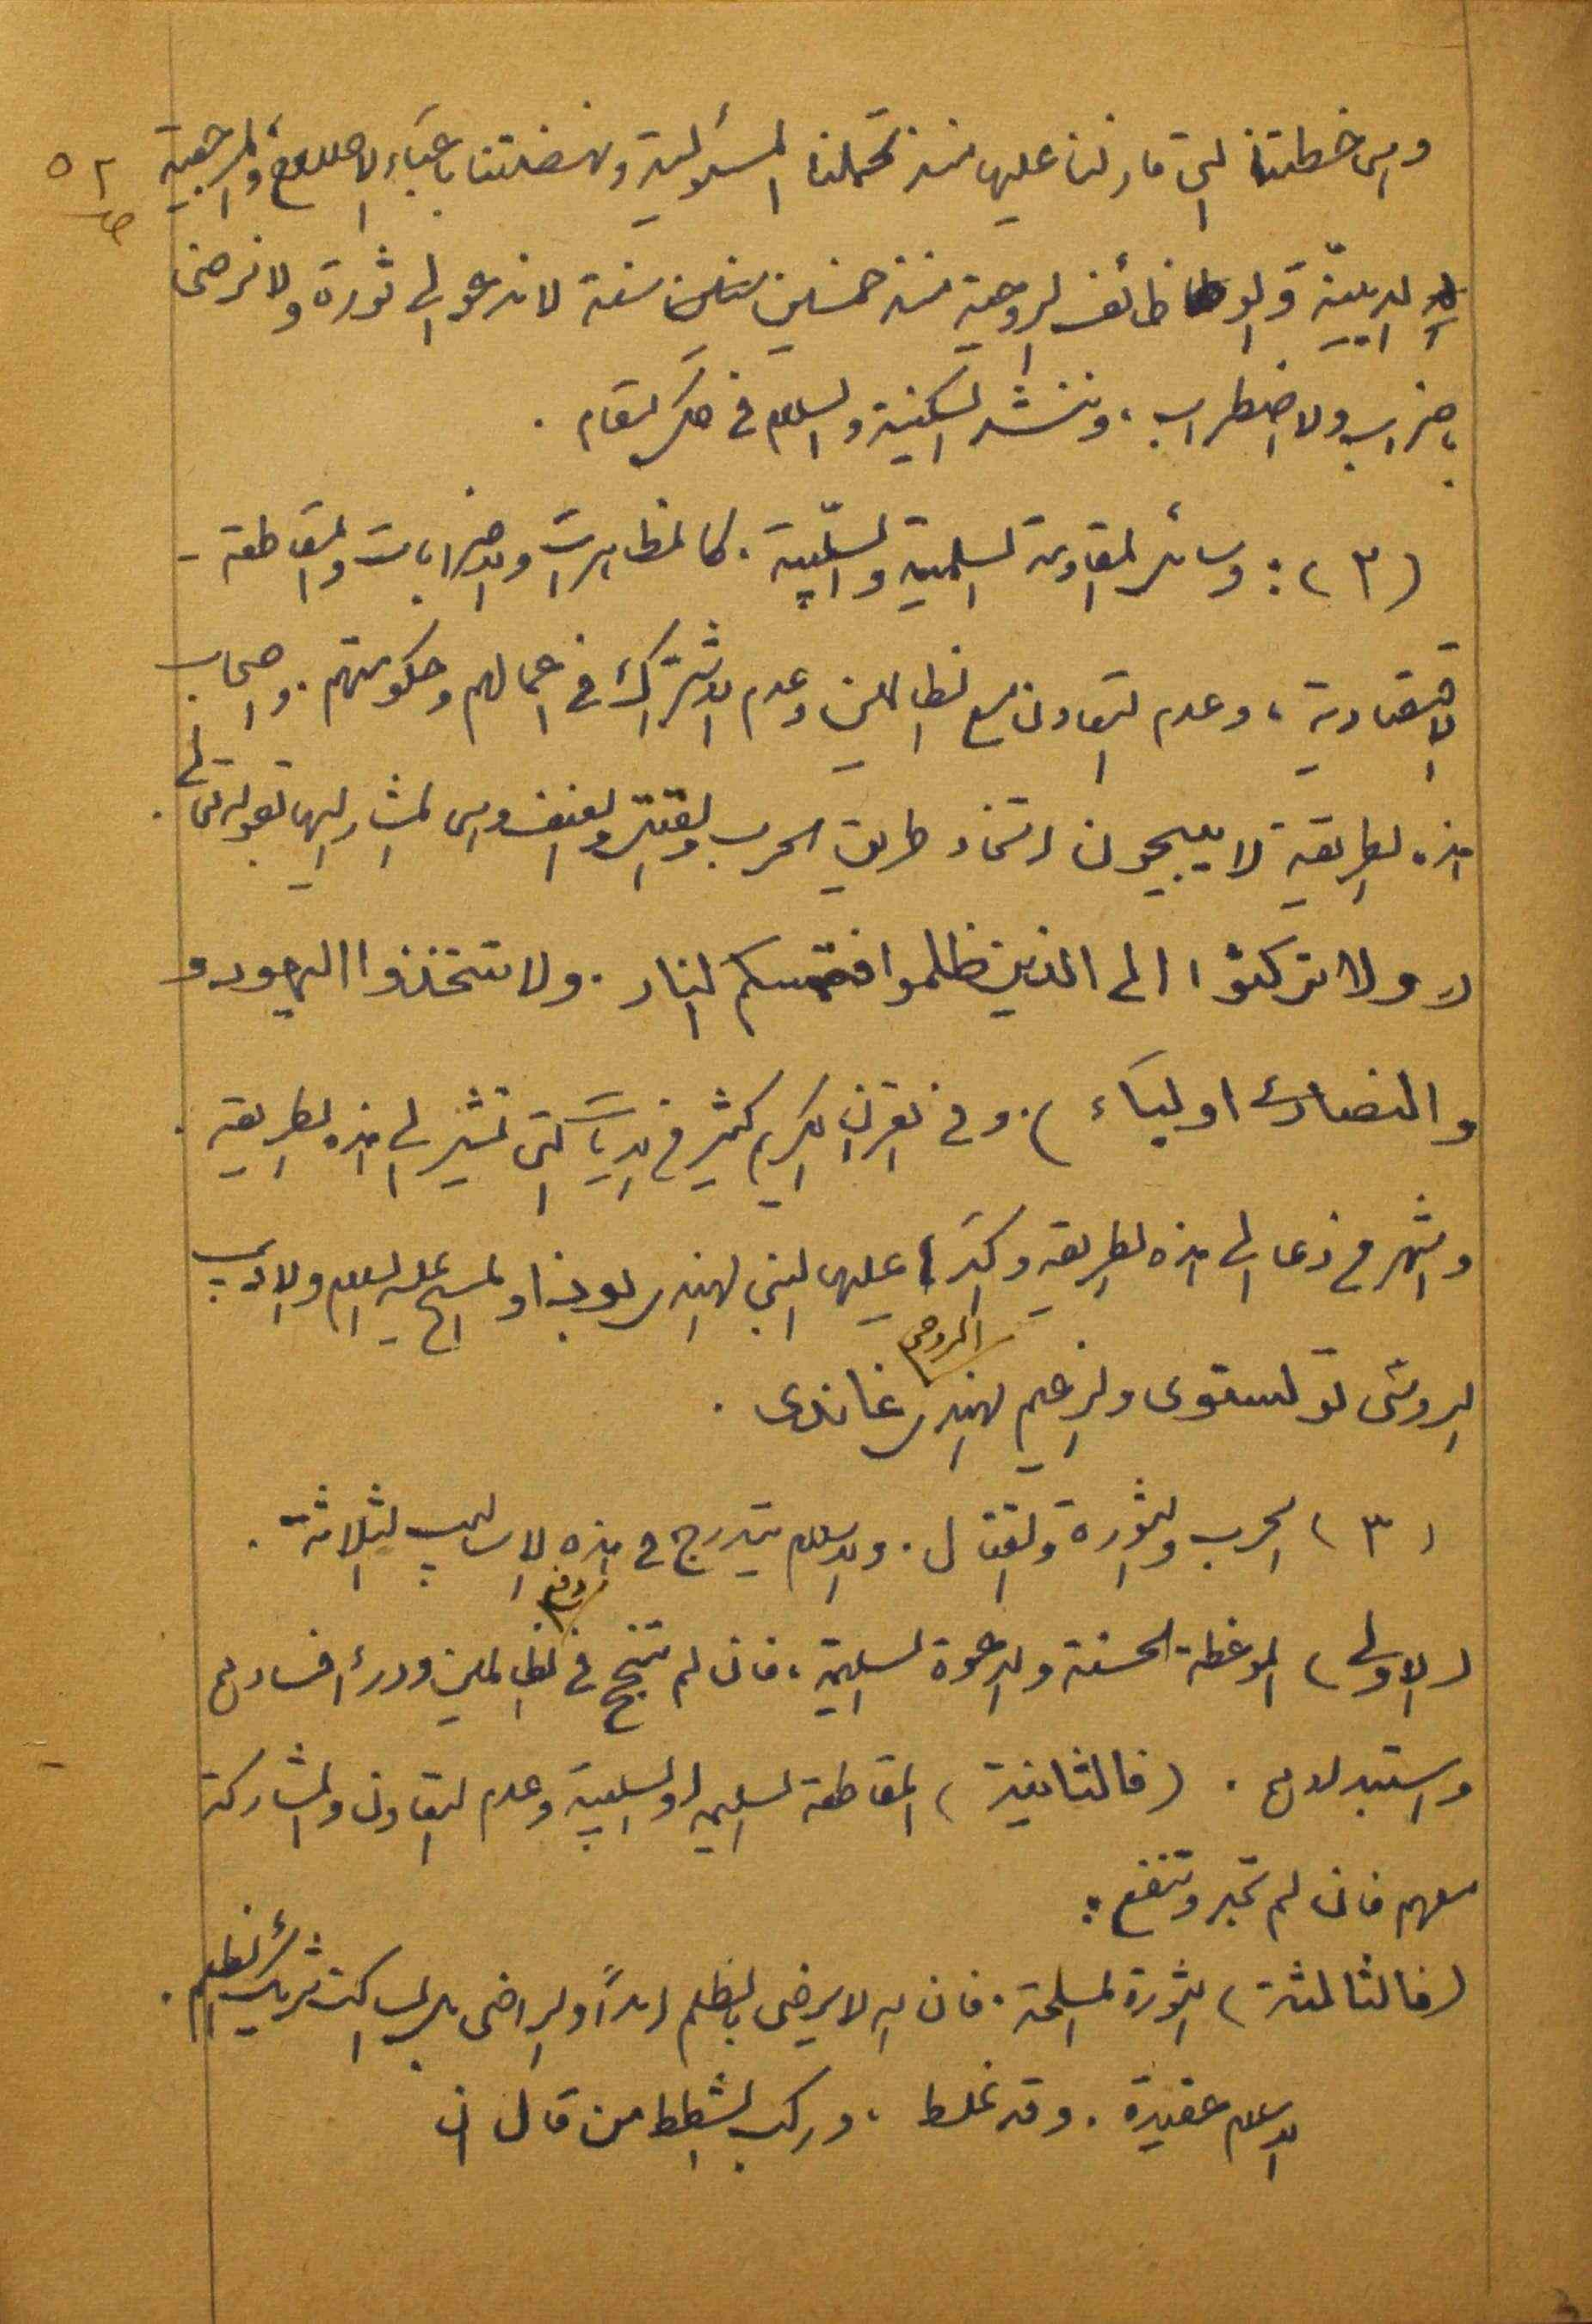 ٥٢
وهي خطتنا التي مازلنا عليها منذ تحملنا المسئولية ونهضتنا باعباء الاصلاح والمرجعية
الدينية والوظائف الروحية منذ خمسين سنة لا ندعو الى ثورة ولا نرضى
باضراب ولا اضطراب، وننشد السكينة والسلام في كل مقام .
(٣): وسائل المقاومة السلمية والسلبية . كالمظاهرات والاضرابات والمقاطعة -
الاقتصادية، وعدم التعاون مع الظالمين وعدم الاشتراك في اعمالهم وحكومتهم . واصحاب
هذه الطريقة لا يبيحون اتخاذ طريق الحرب والقتل والعنف وهي المشار اليها بقوله تعالى .
(ولا تركنوا الى الذين ظلموا فتمسكم النار . ولا تتخذوا اليهود و
والنصارى اولياء) . وفي القرآن الكريم كثير من الآيات التي تشير الى هذه الطريقة .
واشهر من دعا الى هذه الطريقة واكد عليها النبي الهندي بوذا والمسيح عليه السلام والاديب
الروسي تولستوي والزعيم الهندي الروحي غاندي .
(٣) الحرب والثورة والقتال . والاسلام يتدرج في هذه الاساليب الثلاثة .
(الاولى) الموعظة الحسنة والدعوة السليمة، فان لم تنجح في دفع الظالمين ودرء افسادهم
واستبدادهم . (فالثانية) المقاطعة السلمية او السلبية وعدم التعاون والمشاركة
معهم فان لم تجد وتنفع :
(فالثالثة) الثورة المسلحة . فان الله لا يرضى بالظلم ابداً والراضي بل الساكت شريك الظلم .
الاسلام عقيدة . وقد غلط ، وركب الشطط من قال ان